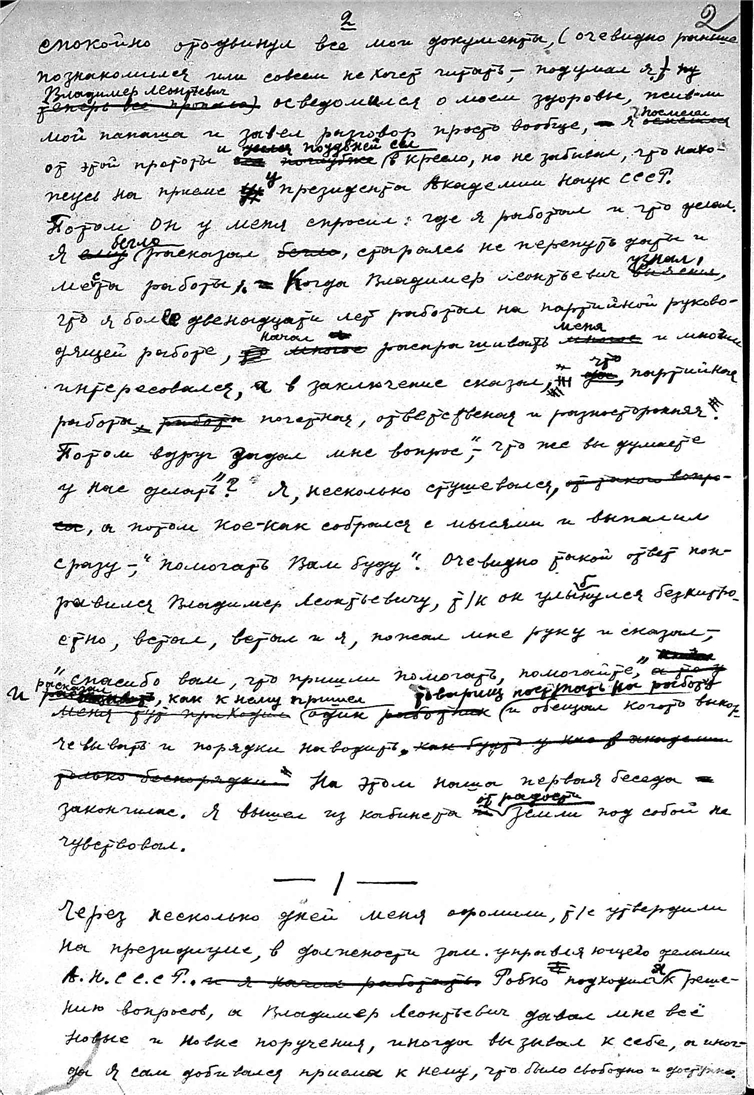 2 2
спокойно отодвинул все мои документы, (очевидно раньше
познакомился или совсем не хочет читать, – подумал я,
Владимер Леонтьевич
теперь всё пропало) осведомился о моем здоровье, жив-ли
мой папаша и завел разговор просто вообще, – я осмелел
от этой простоты и уселся поудобней (в кресло, но не забывал, что нахо-
жусь на приеме у президента Академии Наук СССР.
Потом он у меня спросил: где я работал и что делал.
Я ему бегло расказал бегло, стараясь не перепуть даты и
места работы. – Когда Владимер Леонтьевич узнал, выяснил,
что я более двенадцати лет работал на партийной руково-
дящей работе, начал много распрашивать меня многое и многим
интересовался, а в заключение сказал, "что партийная
работа, работа почетная, ответственая и разносторонняя".
Потом вдруг задал мне вопрос – "что же вы думаете
у нас делать"? Я, несколько стушевался, от такого вопро-
са, а потом кое-как собрался с мыслями и выпалил
сразу –, "помогать Вам буду". Очевидно такой ответ пон-
равился Владимер Леонтьевичу, т/к он улыбнулся безхитро-
стно, встал, встал и я, пожал мне руку и сказал, –
"спасибо вам, что пришли помогать, помогайте," а то у
и расказал, как к нему пришел товарищ поступать на работу
меня тут приходил (один работник (и обещал когото выкор-
чевывать и порядки наводить, как будто у нас в академии
только беспорядки". На этом наша первая беседа –
закончилас. Я вышел из кабинета от радости земли под собой не
чувствовал.
— 1 —
Через несколько дней меня оформили, т/е утвердили
на президиуме, в должности зам. управляющего делами
А.Н.С.С.С.Р., и я начал работать. Робко подходил я к реше-
нию вопросов, а Владимер Леонтьевич давал мне всё
новые и новые поручения, иногда вызывал к себе, а иног-
да я сам добивался приема к нему, что было свободно и доступно.